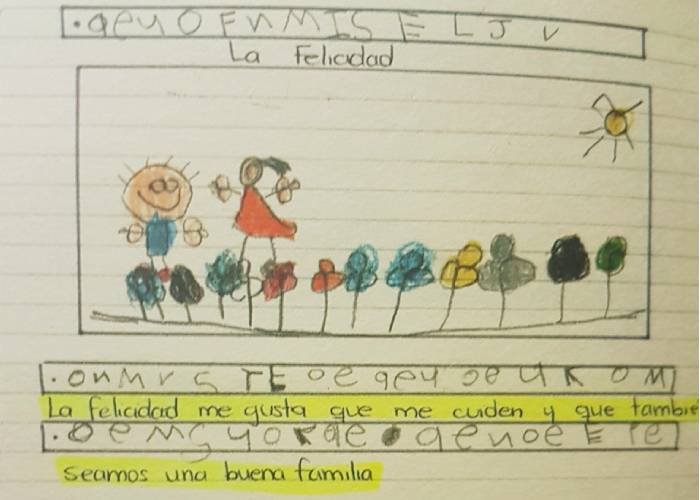 .aeuOFNMISELJV
La felicidad
.onMVSTEoeqeuoeuKOM
La felicidad me gusta que me cuiden y que tambié
seamos una buena familia